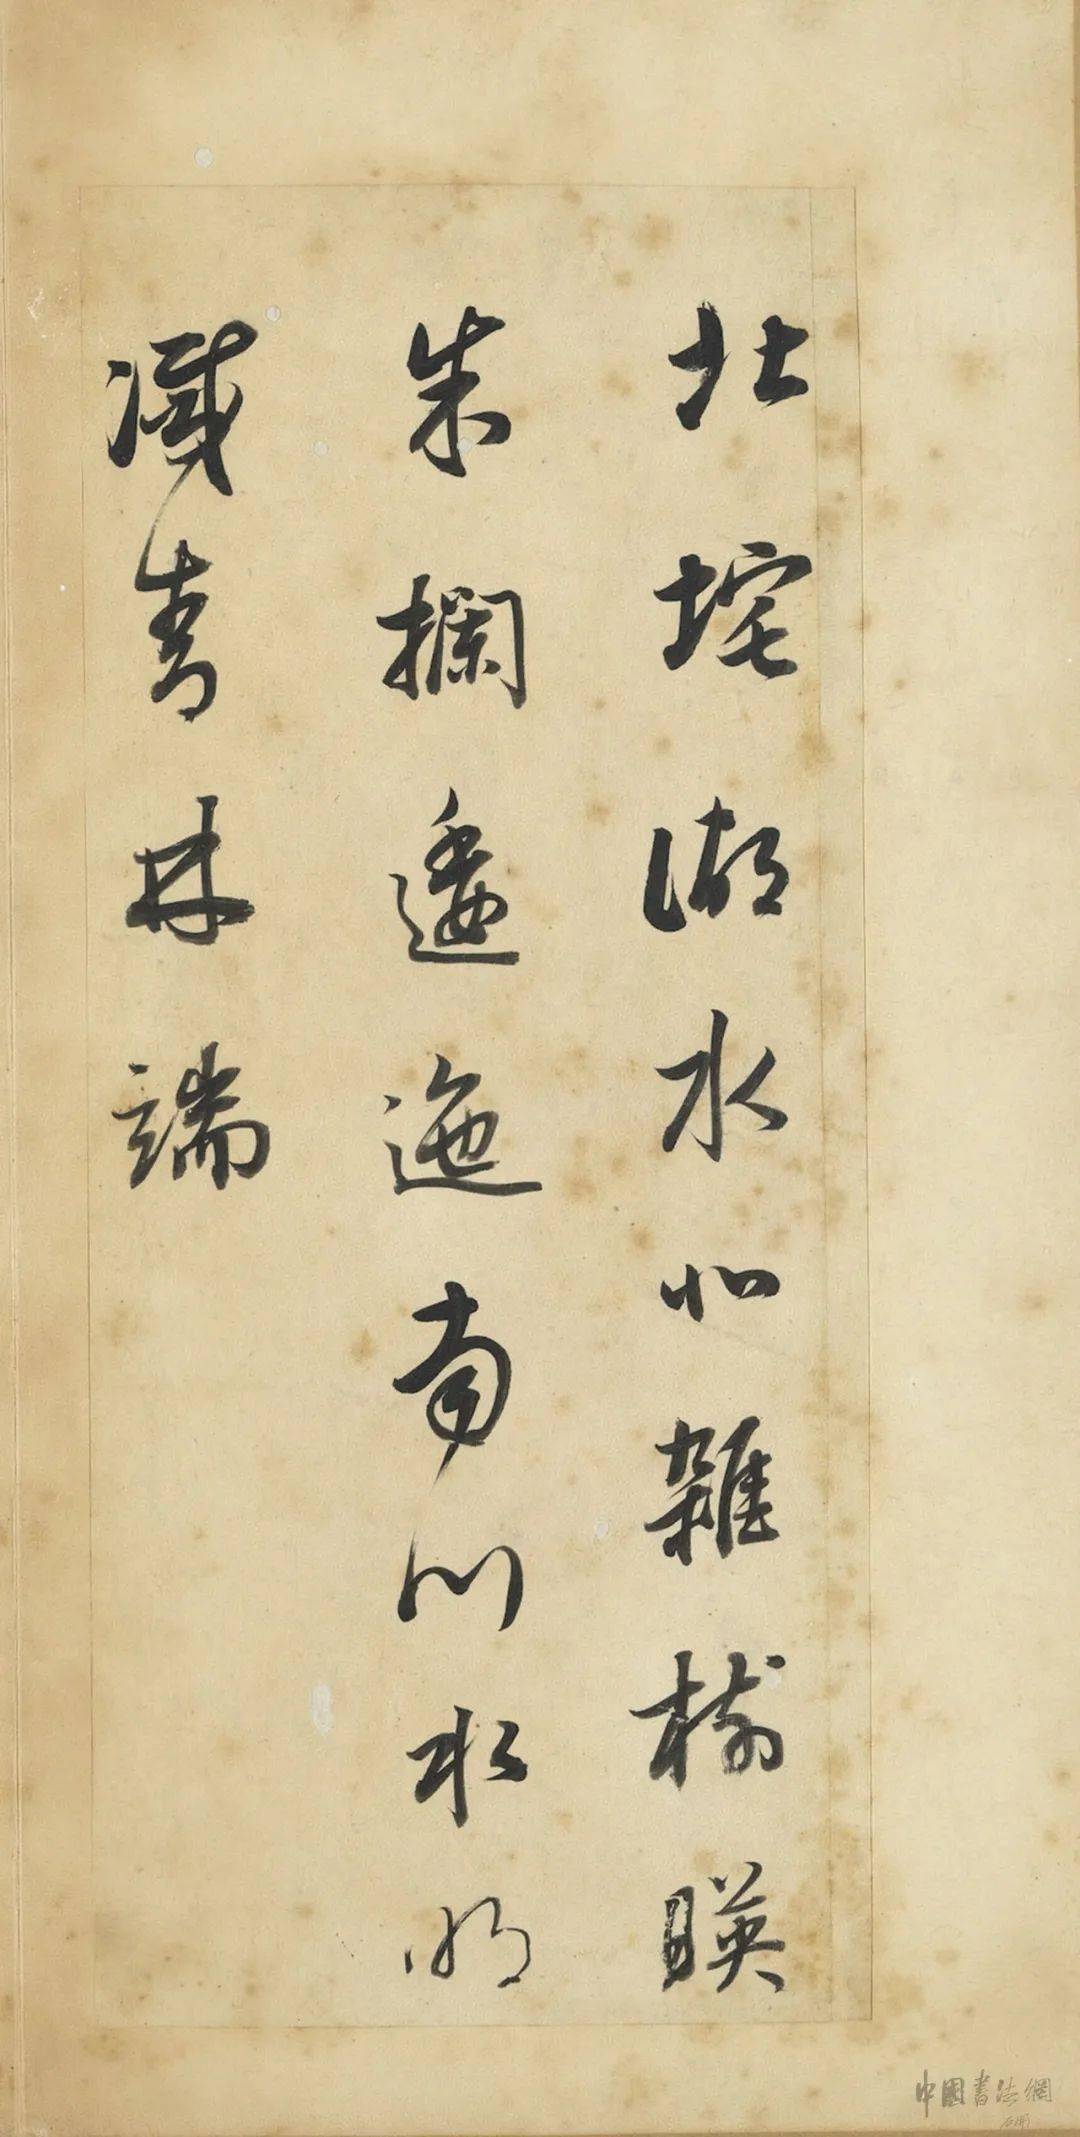 北垞湖水北雜樹暎
朱欄逶迤南川水明
滅青林端
中國書法網